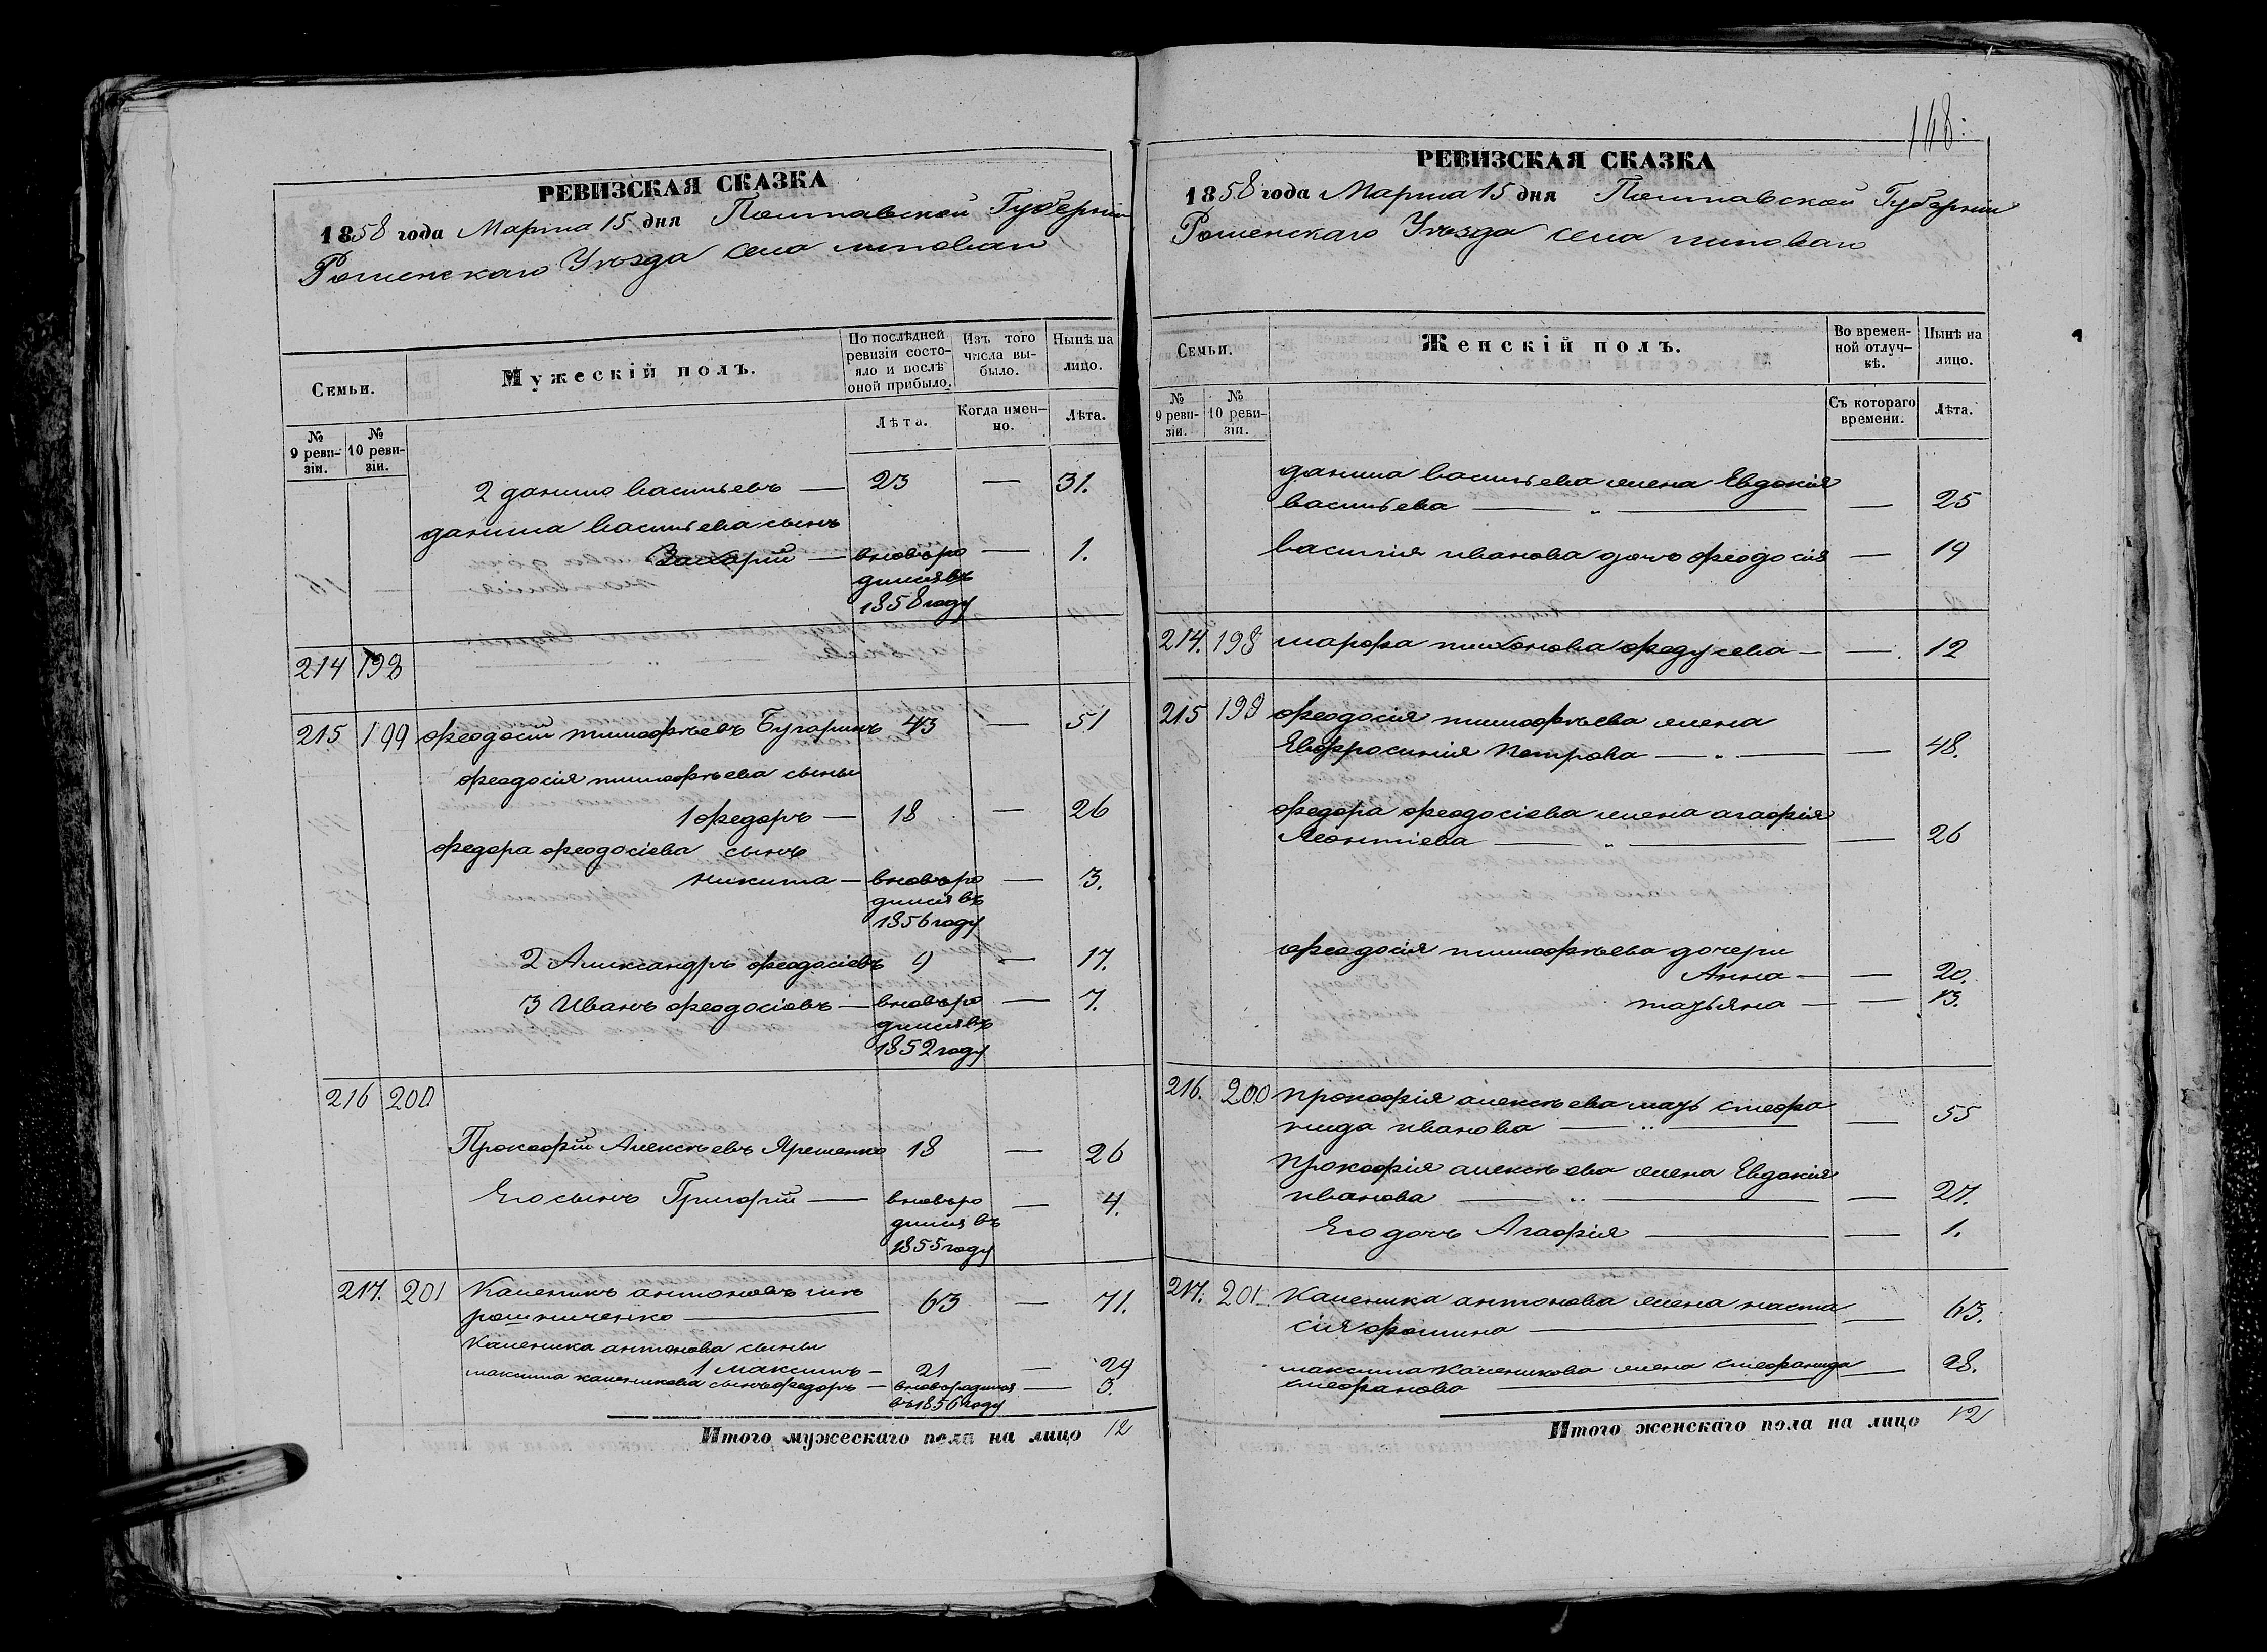 РЕВИЗСКАЯ СКАЗКА
1858 года Марта 15 дня Полтавской Губерніи
Роменскаго Уѣзда села липоваго
Семьи.
Мужескій полъ.
По послѣдней ревизіи состояло и послѣ оной прибыло.
Изъ того числа выбыло.
Нынѣ на лицо.
№ 9 ревизіи.
№ 10 ревизіи.
Лѣта.
Когда именно.
Лѣта.
2 данило васильевъ — 23 — 31.
данила васильева сынъ
Захарій — вновьро — 1.
дился въ
1858 году
214 198
215 199 феодосій тимофѣевъ Бугаринъ 43 — 51
феодосія тимофѣева сыны
1 федоръ — 18 — 26
федора феодосіева сынъ
никита — вновьро — 3.
дился въ
1856 году
2 Александръ феодосіевъ 9 — 17.
3 Иванъ феодосіевъ — вновьро — 7.
дился въ
1852 году
216 200
Прокофій Алексѣевъ Яременко 18 — 26
Его сынъ Григорій — вновьро — 4.
дился въ
1855 году
217. 201 Каленикъ антоновъ
63 — 71.
Каленика антонова сыны
1 максимъ — 21 — 29
максима каленикова сынъ федоръ — вновьродился — 3.
въ 1856 году
Итого мужескаго пола на лицо 12
148.
РЕВИЗСКАЯ СКАЗКА
1858 года Марта 15 дня Полтавской Губерніи
Роменскаго Уѣзда села липоваго
Семьи.
Женскій полъ.
Во временной отлучкѣ.
Нынѣ на лицо.
№ 9 ревизіи.
№ 10 ревизіи.
Съ котораго времени.
Лѣта.
данила васильева жена Евдокія
васильева — „ — — 25
василія иванова дочь феодосія — 19
214. 198 марфа тихонова федусева — — 12
215 199 феодосія тимофѣева жена
Евфросинія Петрова — „ — — 48.
федора феодосіева жена агафія
Леонтіева — „ — — 26
феодосія тимофѣева дочери
Анна — — 20.
татьяна — — 13.
216. 200 Прокофія алексѣева мать стефа
нида иванова — „ — — 55
Прокофія алексѣева жена Евдокія
иванова — „ — — 27.
Его дочь Агафія — — 1.
217. 201 Каленика антонова жена наста
сія фомина — — 63.
максима Каленикова жена стефанида — 28.
стефанова —
Итого женскаго пола на лицо 12